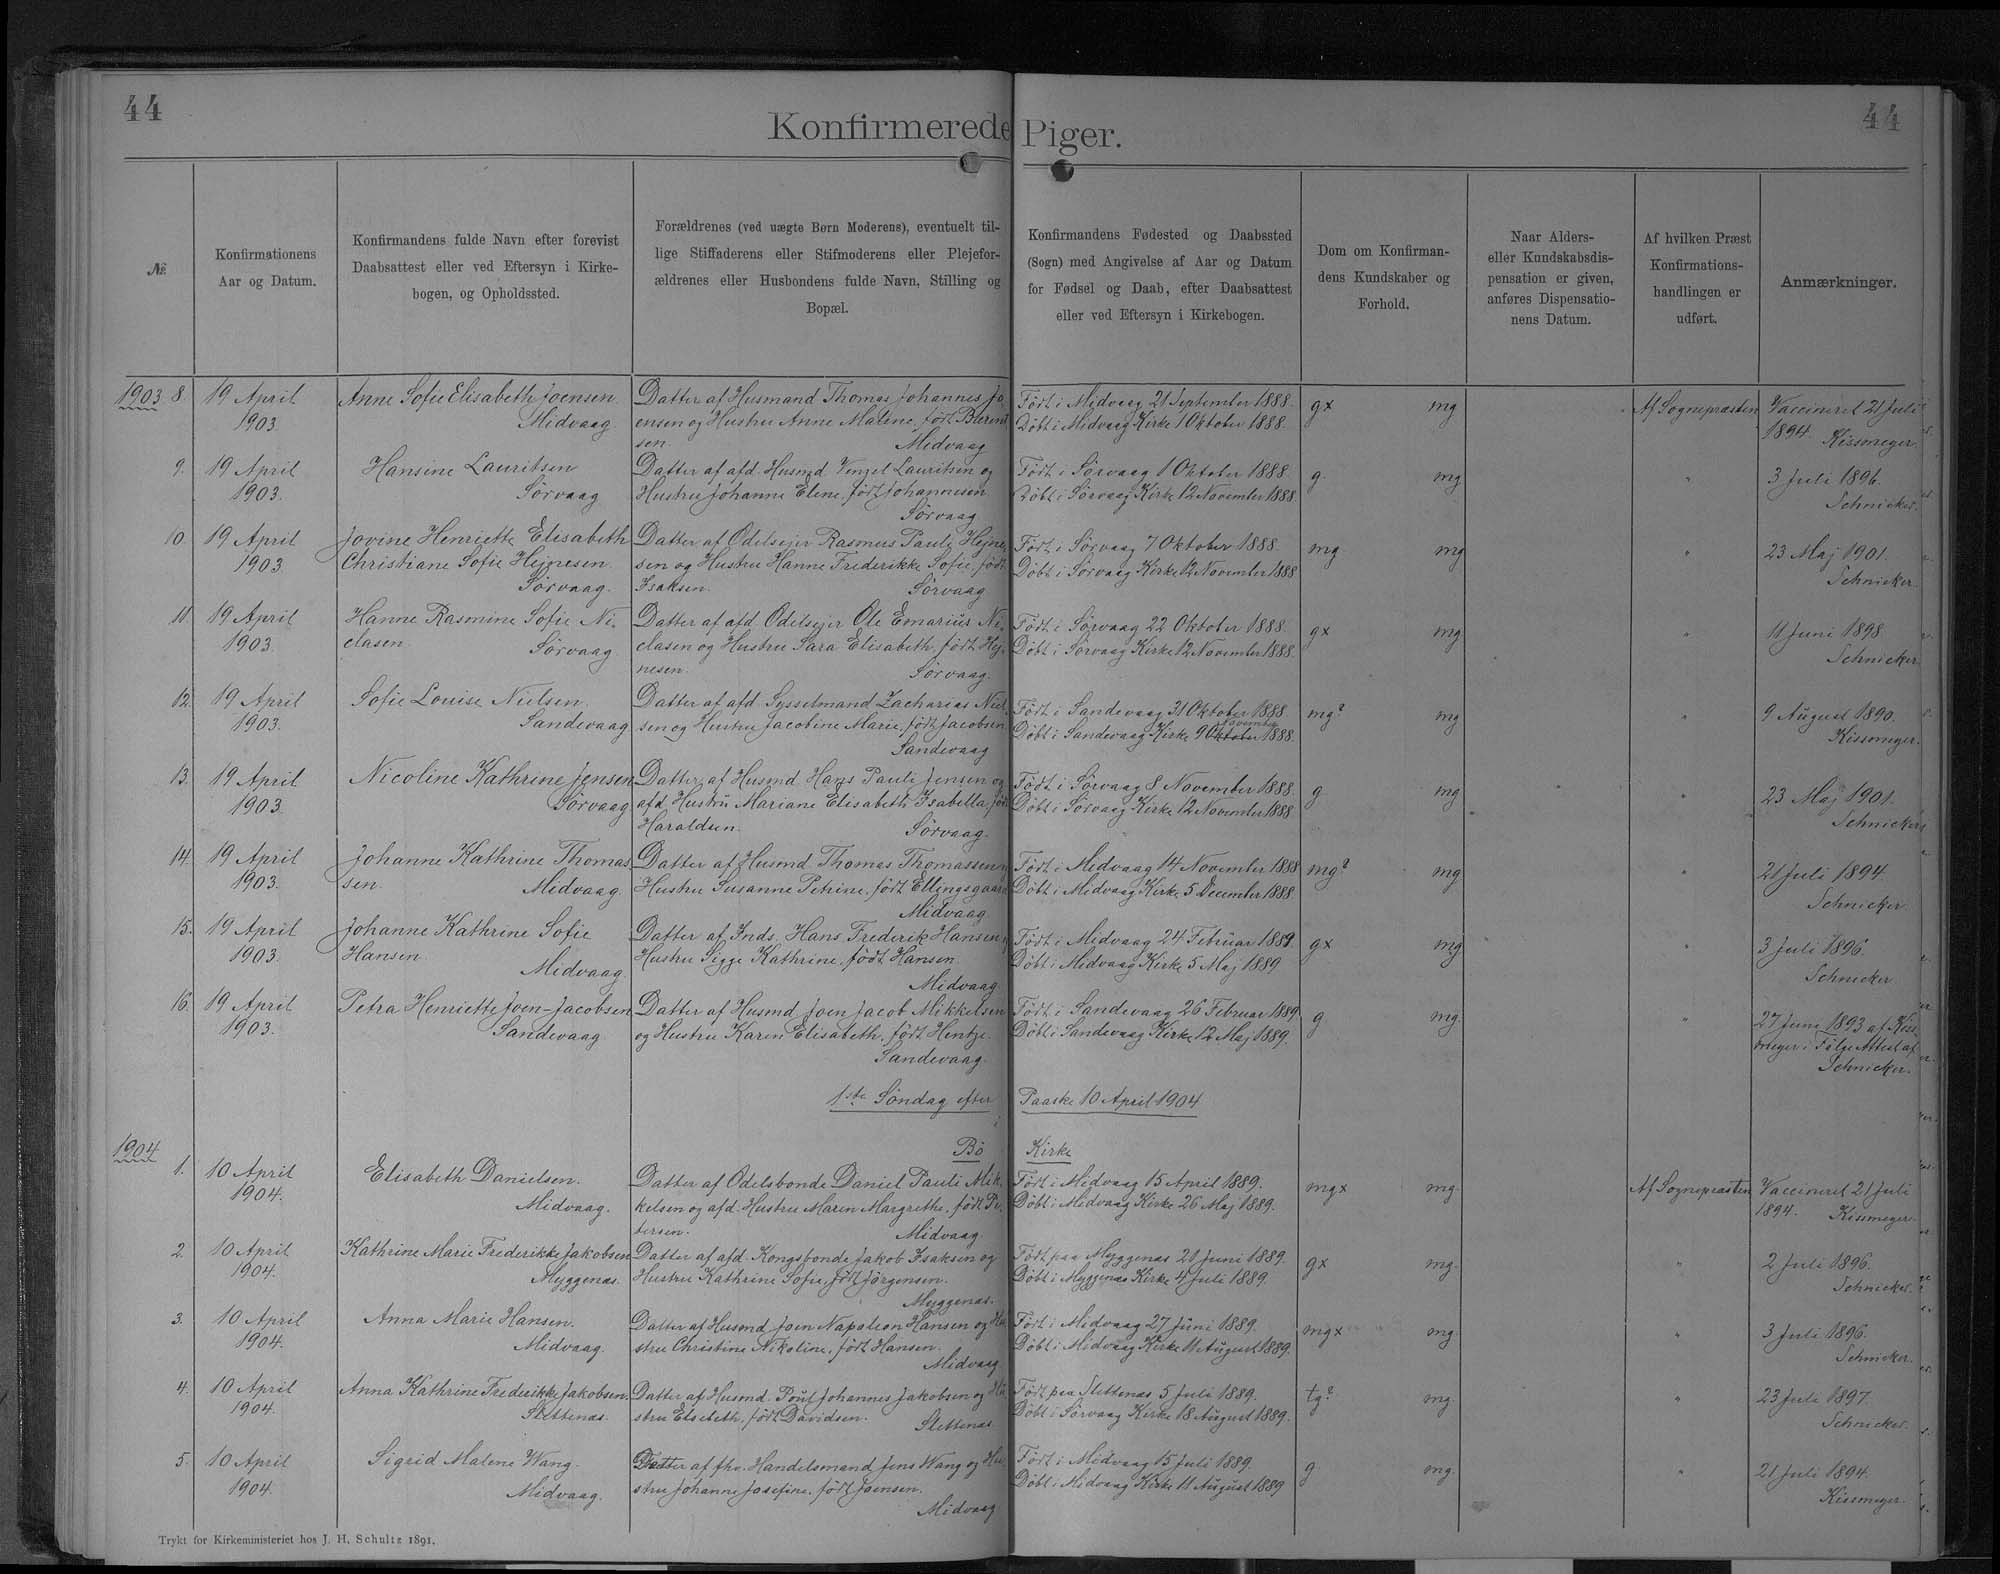 44
44
Konfirmerede Piger.
№
Konfirmationens
Aar og Datum.
Konfirmandens fulde Navn efter forevist
Daabsattest eller ved Eftersyn i Kirke-
bogen, og Opholdssted.
Forældrenes (ved uægte Børn Moderens), eventuelt til-
lige Stiffaderens eller Stifmoderens eller Plejefor-
ældrenes eller Husbondens fulde Navn, Stilling og
Bopæl.
Konfirmandens Fødested og Daabssted
(Sogn) med Angivelse af Aar og Datum
for Fødsel og Daab, efter Daabsattest
eller ved Eftersyn i Kirkebogen.
Dom om Konfirman-
dens Kundskaber og
Forhold.
Naar Alders-
eller Kundskabsdis-
pensation er given,
anføres Dispensatio-
nens Datum.
Af hvilken Præst
Konfirmations-
handlingen er
udført.
Anmærkninger.
1903 8. 19 April
1903.
Anne Sofie Elisabeth Joensen.
Midvaag
Datter af Husmand Thomas Johannes Jo-
ensen og Hustru Anne Malene, født Bærent
sen. Midvaag
Født i Midvaag 21 September 1888.
Döbt i Midvaag Kirke 1 Oktober 1888.
gx mg
Af Sognepræsten
Vaccineret 21 Juli
1894. Kissmeyer.
9. 19 April
1903.
Hansine Lauritsen
Sörvaag
Datter af afd. Husmd Venzel Lauritsen og
Hustru Johanne Elene, født Johannesen
Sörvaag
Født i Sörvaag 1 Oktober 1888.
Döbt i Sörvaag Kirke 12 November 1888.
g. mg
"
3 Juli 1896.
Schnicker.
10. 19 April
1903
Jovine Henriette Elisabeth
Christiane Sofie Hejnesen.
Sörvaag.
Datter af Odelsejer Rasmus Pauli Hejne-
sen og Hustru Hanne Frederikke Sofie, født
Isaksen. Sörvaag
Født i Sörvaag 7 Oktober 1888.
Döbt i Sörvaag Kirke 12 November 1888
mg mg
"
23 Maj 1901.
Schnicker.
11. 19 April
1903.
Hanne Rasmine Sofie Ni-
clasen. Sörvaag
Datter af afd. Odelsejer Ole Emarius Ni-
clasen og Hustru Sara Elisabeth, født Hej-
nesen. Sörvaag.
Født i Sörvaag 22 Oktober 1888.
Döbt i Sörvaag Kirke 12 November 1888.
gx mg
"
11 Juni 1898
Schnicker
12. 19 April
1903.
Sofie Louise Nielsen.
Sandevaag
Datter af afd. Sysselmand Zacharias Niel-
sen og Hustru Jacobine Marie, født Jacobsen
Sandevaag
Født i Sandevaag 31 Oktober 1888
November
Döbt i Sandevaag Kirke 9 Oktober 1888.
mg? mg
"
9 August 1890.
Kissmeyer.
13. 19 April
1903.
Nicoline Kathrine Jensen
Sörvaag
Datter af Husmd Hans Pauli Jensen og
afd. Hustru Mariane Elisabeth Isabella, født
Haraldsen. Sörvaag.
Født i Sörvaag 8 November 1888.
Döbt i Sörvaag Kirke 12 November 1888
g mg
"
23 Maj 1901.
Schnicker
14. 19 April
1903.
Johanne Kathrine Thomas-
sen. Midvaag.
Datter af Husmd Thomas Thomassen og
Hustru Susanne Petrine, født Ellingsgaard
Midvaag
Født i Midvaag 14 November 1888
Döbt i Midvaag Kirke 5 December 1888.
mg? mg
"
21 Juli 1894.
Schnicker
15. 19 April
1903.
Johanne Kathrine Sofie
Hansen. Midvaag.
Datter af Inds. Hans Frederik Hansen og
Hustru Sigge Kathrine, født Hansen.
Midvaag.
Født i Midvaag 24 Februar 1889.
Döbt i Midvaag Kirke 5 Maj 1889
gx mg
"
3 Juli 1896.
Schnicker
16. 19 April
1903.
Petra Henriette Joen-Jacobsen
Sandevaag
Datter af Husmd Joen Jacob Mikkelsen
og Hustru Karen Elisabeth, født Hentze.
Sandevaag.
Født i Sandevaag 26 Februar 1889
Döbt i Sandevaag Kirke 12 Maj 1889.
g mg.
"
27 Juni 1893 af Kiss-
meyer i Følge Attest af
Schnicker.
1ste Söndag efter Paaske 10 April 1904
Bö Kirke
1904
1. 10 April
1904.
Elisabeth Danielsen.
Midvaag.
Datter af Odelsbonde Daniel Pauli Mik-
kelsen og afd. Hustru Maren Margrethe, født Pe-
tersen. Midvaag
Født i Midvaag 15 April 1889.
Döbt i Midvaag Kirke 26 Maj 1889.
mgx mg.
Af Sognepræsten
Vaccineret 21 Juli
1894. Kissmeyer.
2. 10 April
1904.
Kathrine Marie Frederikke Jakobsen
Myggenæs.
Datter af afd. Kongsbonde Jakob Isaksen og
Hustru Kathrine Sofie, født Jörgensen.
Myggenæs.
Født paa Myggenæs 21 Juni 1889.
Döbt i Myggenæs Kirke 4 Juli 1889.
gx mg.
"
2 Juli 1896.
Schnicker.
3. 10 April
1904.
Anna Marie Hansen.
Midvaag.
Datter af Husmd Joen Napoleon Hansen og Hu-
stru Christine Nikoline, født Hansen.
Midvaag
Født i Midvaag 27 Juni 1889.
Döbt i Midvaag Kirke 11 August 1889.
mgx mg.
"
3 Juli 1896.
Schnicker.
4. 10 April
1904.
Anna Kathrine Frederikke Jakobsen.
Slettenæs.
Datter af Husmd. Poul Johannes Jakobsen og Hu-
stru Elsebeth, født Davidsen.
Slettenæs
Født paa Slettenæs 5 Juli 1889.
Döbt i Sörvaag Kirke 18 August 1889.
tg? mg.
"
23 Juli 1897.
Schnicker.
5. 10 April
1904.
Sigrid Malene Wang.
Midvaag.
Datter af fhv. Handelsmand Jens Wang og Hu-
stru Johanne Josefine, født Joensen.
Midvaag
Født i Midvaag 15 Juli 1889.
Döbt i Midvaag Kirke 11 August 1889
g mg.
"
21 Juli 1894.
Kissmeyer.
Trykt for Kirkeministeriet hos J. H. Schultz 1891.